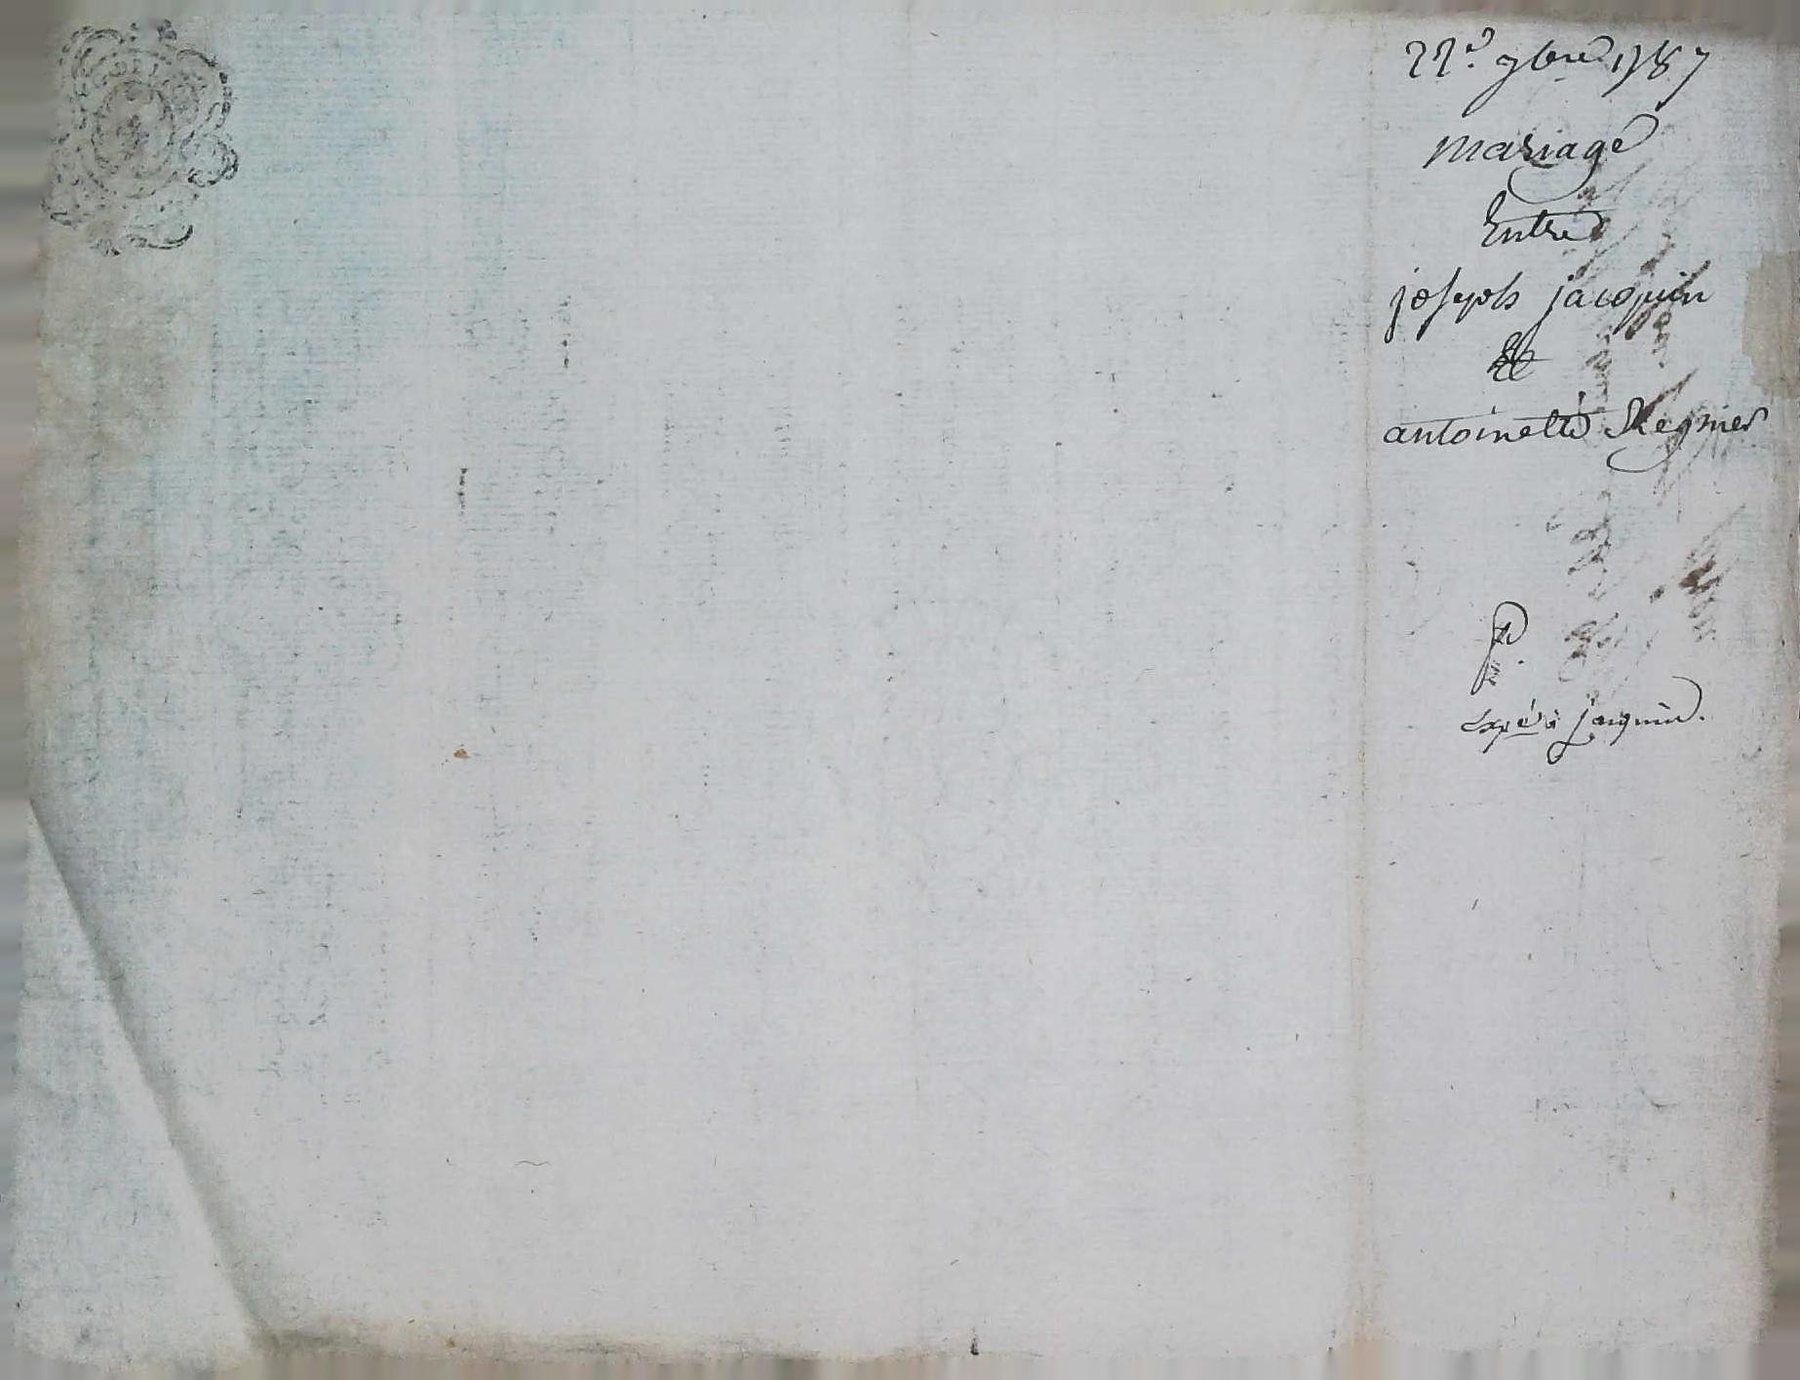 22.e 9bre 1787
mariage
Entre
joseph jacquin
&
antoinette Regnier
expé à jacquin.